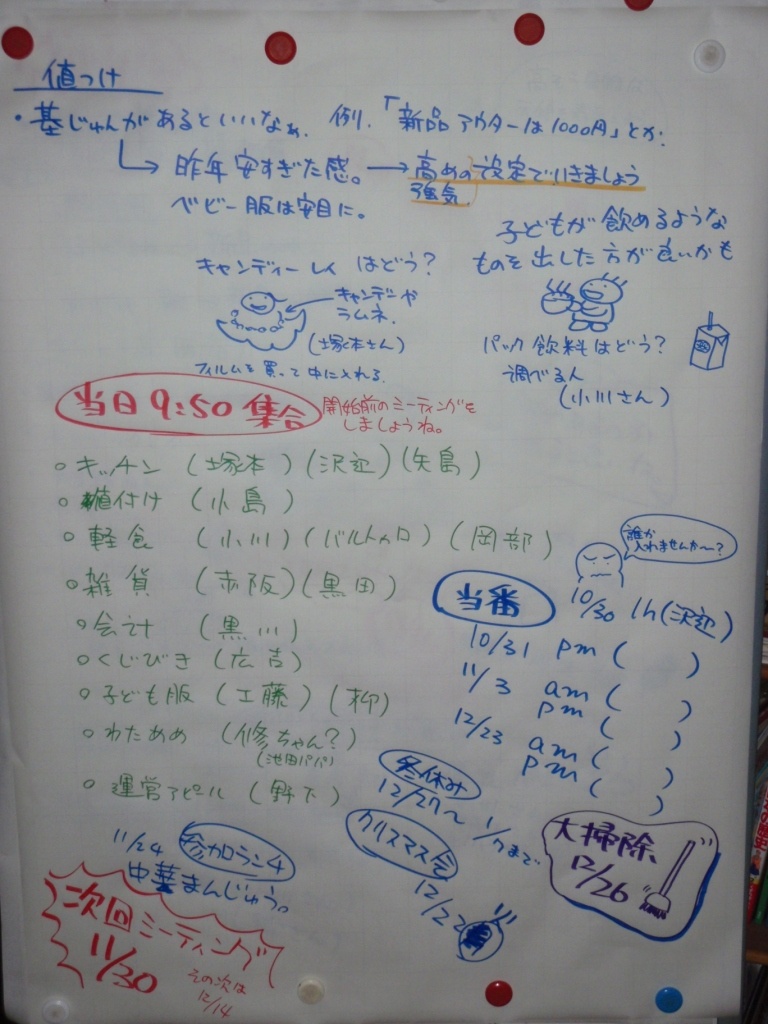 値つけ
・基じゅんがあるといいなぁ. 例.「新品アウターは1000円」とか.
→ 昨年安すぎた感。→ 高めの設定でいきましょう
強気
ベビー服は安目に。
子どもが飲めるような
ものを出した方が良いかも
キャンディーレイ はどう?
キャンデーや
ラムネ.
(塚本さん)
フィルムを買って中に入れる.
パック飲料はどう?
調べる人
(小川さん)
当日 9:50 集合
開始前のミーティングを
しましょうね。
○ キッチン (塚本)(沢辺)(矢島)
○ 値付け (小島)
○ 軽食 (小川)(バルトゥロ)(岡部)
○ 雑貨 (赤阪)(黒田)
○ 会計 (黒川)
○ くじびき (広吉)
○ 子ども服 (工藤)(柳)
○ わたあめ (修ちゃん?)
(池田パパ)
○ 運営アピール (野下)
誰か
入れませんか〜?
当番
10/30 1h(沢辺)
10/31 pm ( )
11/3 am ( )
pm ( )
12/23 am ( )
pm ( )
冬休み
12/27〜 1/7まで
クリスマス会
12/22
大掃除
12/26
11/24
中華まんじゅう。
次回ミーティング
11/30
その次は
12/14